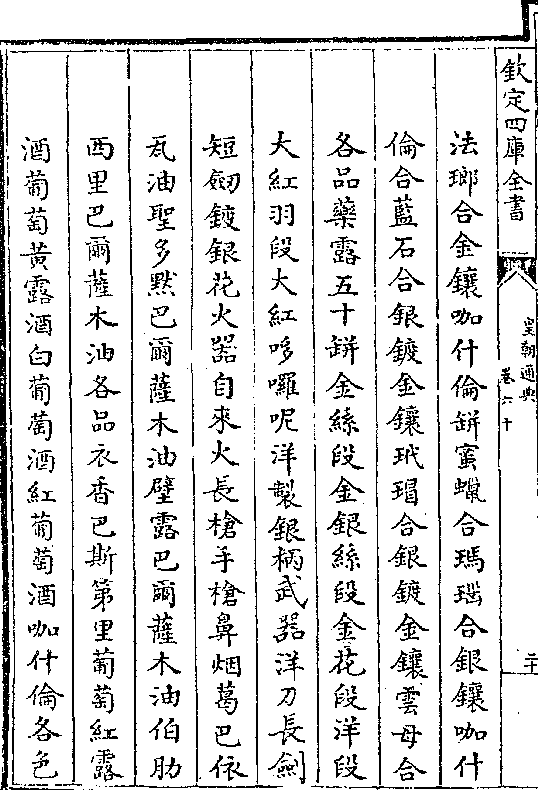 欽定四庫全書
皇朝通典
卷六十
二十
法瑯合金鑲咖什倫缾蜜蠟合瑪瑙合銀鑲咖什
倫合藍石合銀鍍金鑲玳瑁合銀鍍金鑲雲母合
各品藥露五十缾金絲段金銀絲段金花段洋段
大紅羽段大紅哆囉呢洋製銀柄武器洋刀長劍
短劒鍍銀花火器自來火長槍手槍鼻烟葛巴依
瓦油聖多黙巴爾薩木油壁露巴爾薩木油伯肋
西里巴爾薩木油各品衣香巴斯第里葡萄紅露
酒葡萄黃露酒白葡萄酒紅葡萄酒咖什倫各色